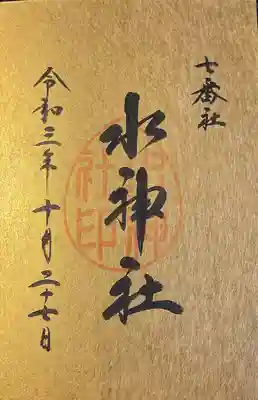 七番社
水神社
令和三年十月二十七日